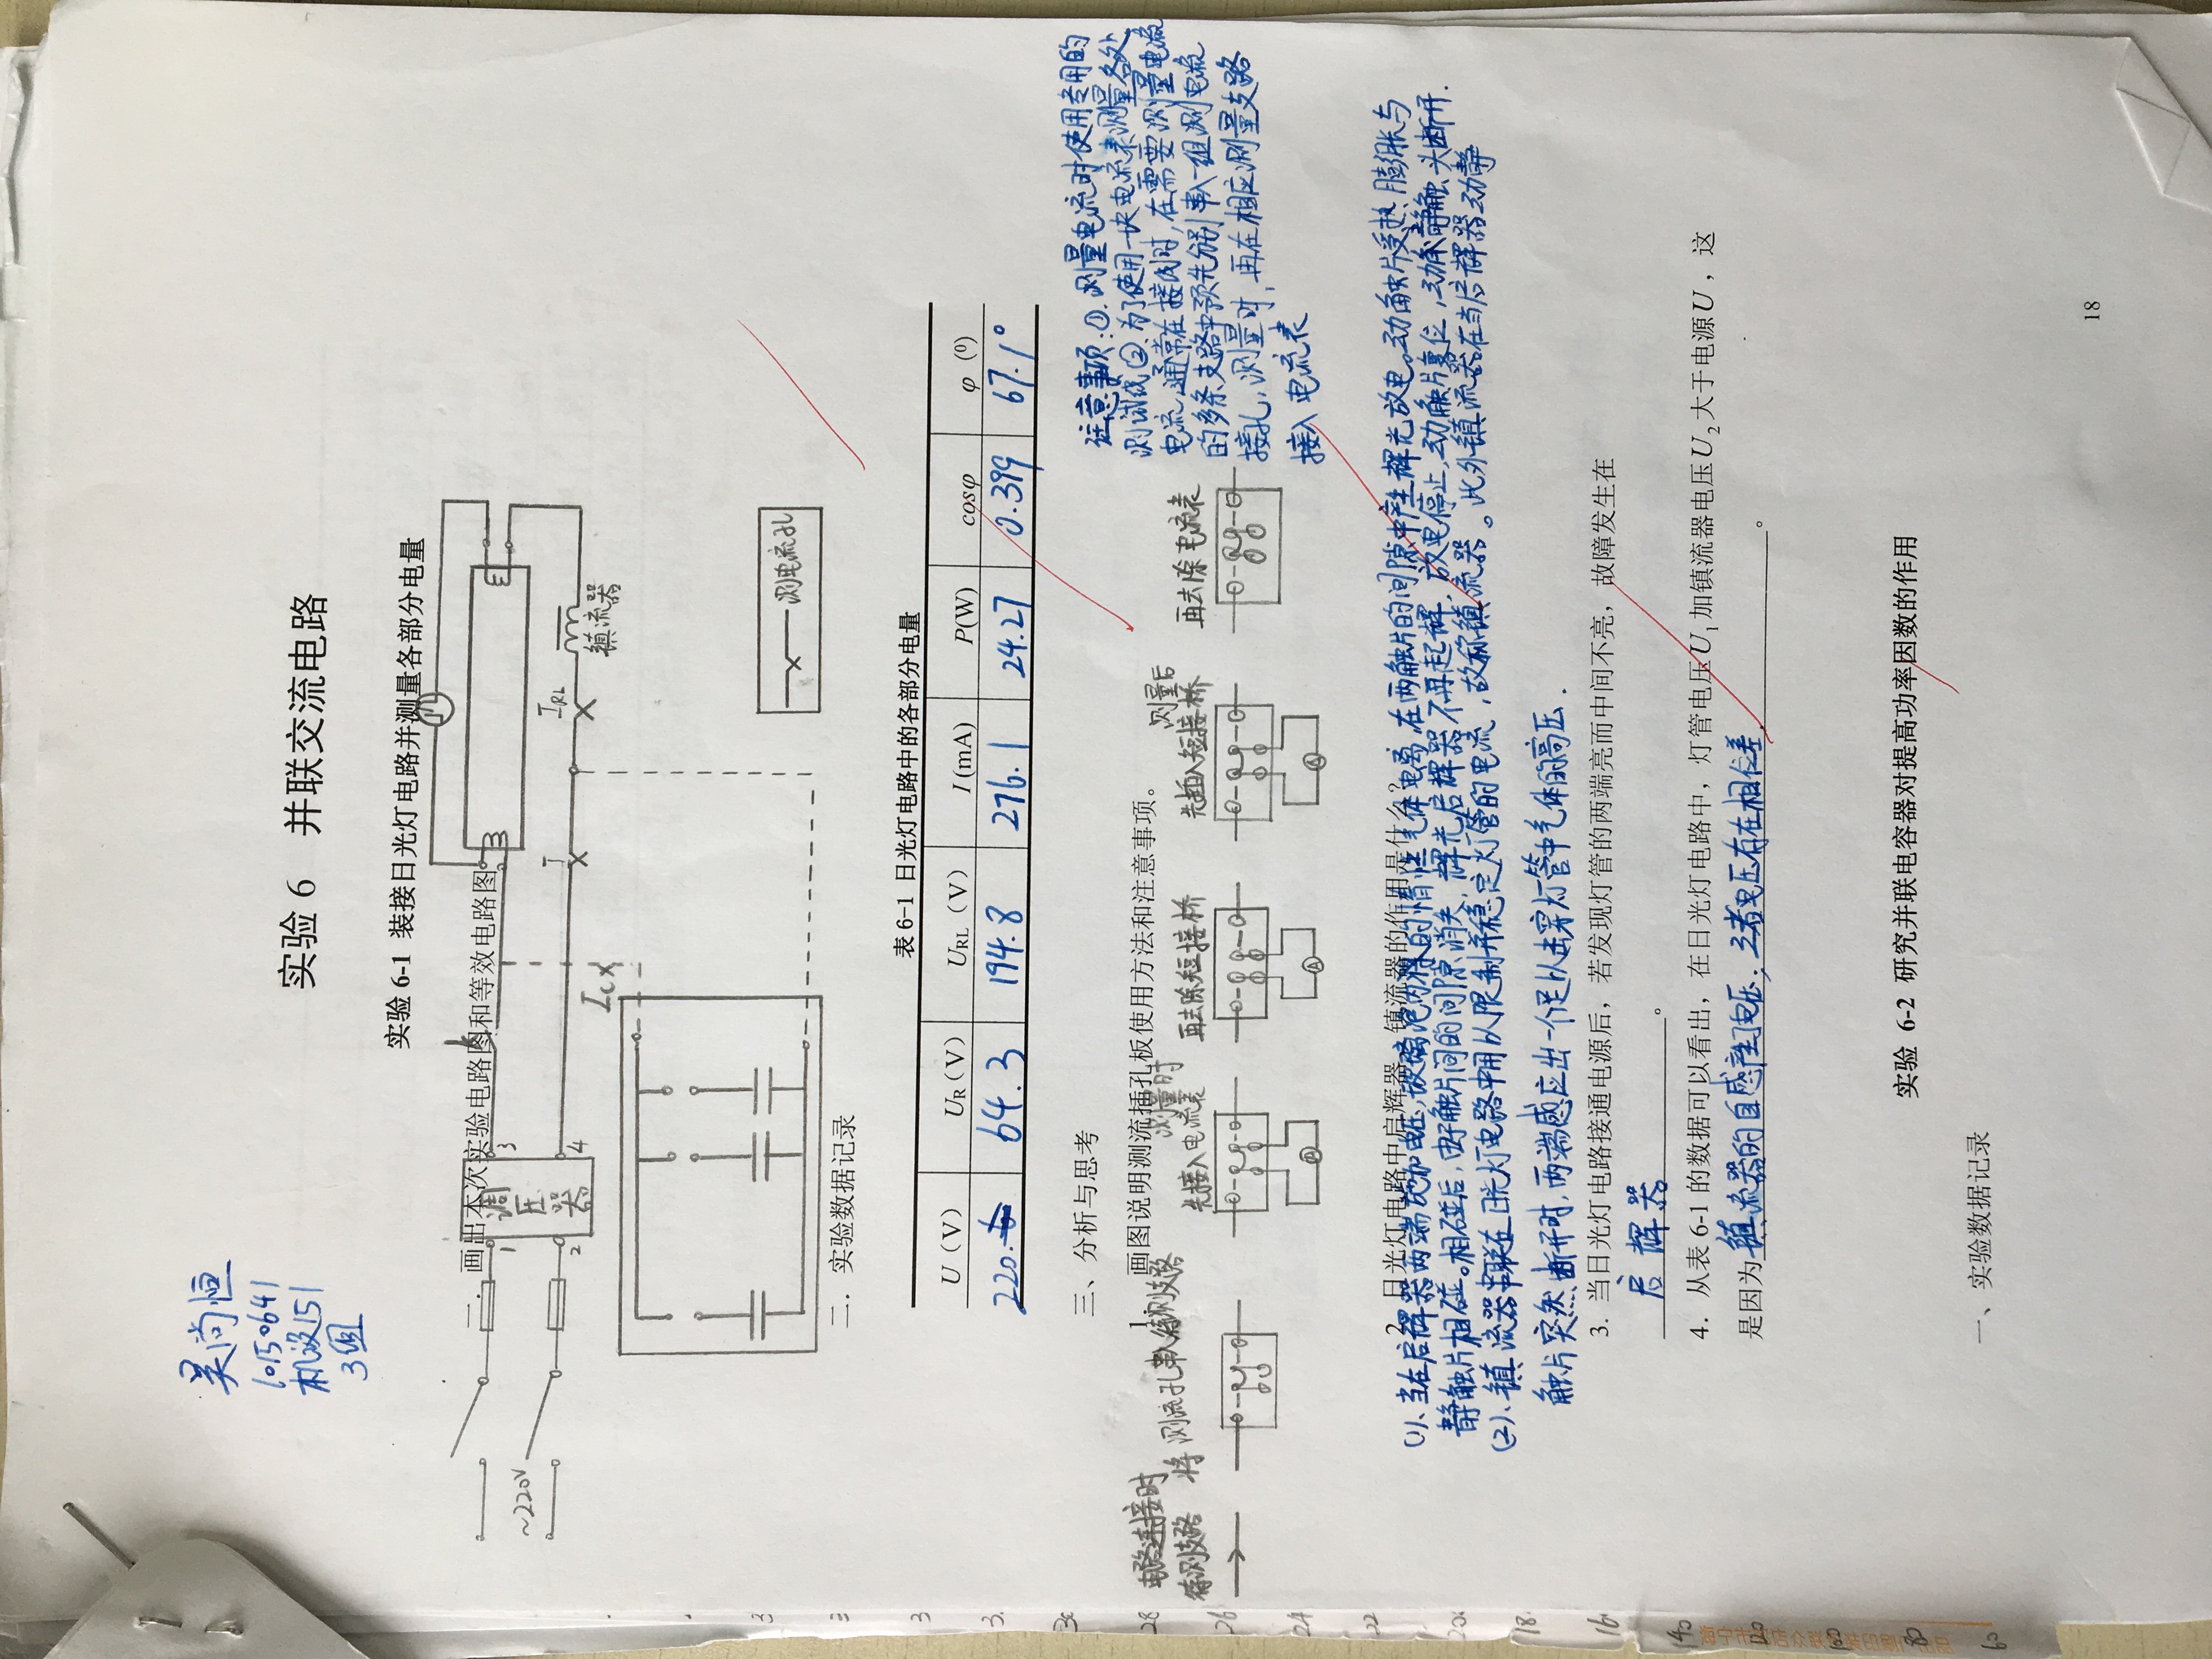 吴尚恒
10150641
机设151
3组
实验 6 并联交流电路
实验 6-1 装接日光灯电路并测量各部分电量
一．画出本次实验电路图和等效电路图
~220V
1
2
调压器
3
4
k
I
I_RL
镇流器
I_C
测电流孔
二．实验数据记录
表 6-1 日光灯电路中的各部分电量
U（V） U_R（V） U_RL（V） I(mA) P(W) cosφ φ (⁰)
220. 64.3 194.8 276.1 24.27 0.399 67.1°
三、分析与思考
1． 画图说明测流插孔板使用方法和注意事项。
电路连接时
待测支路
将测流孔串入待测支路
测量时
先接入电流表
再去除短接桥
测量后
先插入短接桥
再去除电流表
A
A
A
注意事项:①.测量电流时使用专用的
测试线②.为了使用一块电流表测量各处
电流,通常在接线时,在需要测量电流
的多条支路中预先分别串入一组测电流
接孔,测量时,再在相应测量支路
接入电流表
2. 日光灯电路中启辉器、镇流器的作用是什么？
(1)、当在启辉器两端施加电压,玻璃泡内稀的惰性气体电离,在两触片的间隙中产生辉光放电。动触片受热膨胀与
静触片相碰。相碰后,由于触片间的间隙消失,辉光启辉器不再起辉,放电停止,动触片复位,动静触头断开.
(2)、镇流器串联在日光灯电路中用以限制并稳定灯管的电流,故称镇流器。此外镇流器在当启辉器动静
触片突然断开时,两端感应出一个足以击穿灯管中气体的高压.
3. 当日光灯电路接通电源后，若发现灯管的两端亮而中间不亮，故障发生在
启辉器。
4．从表 6-1 的数据可以看出，在日光灯电路中，灯管电压U₁加镇流器电压U₂大于电源U，这
是因为镇流器的自感产生了电压;三者电压存在相位差.。
实验 6-2 研究并联电容器对提高功率因数的作用
一、实验数据记录
18
30
28
26
24
22
200
18
16
140
120
100
80
60